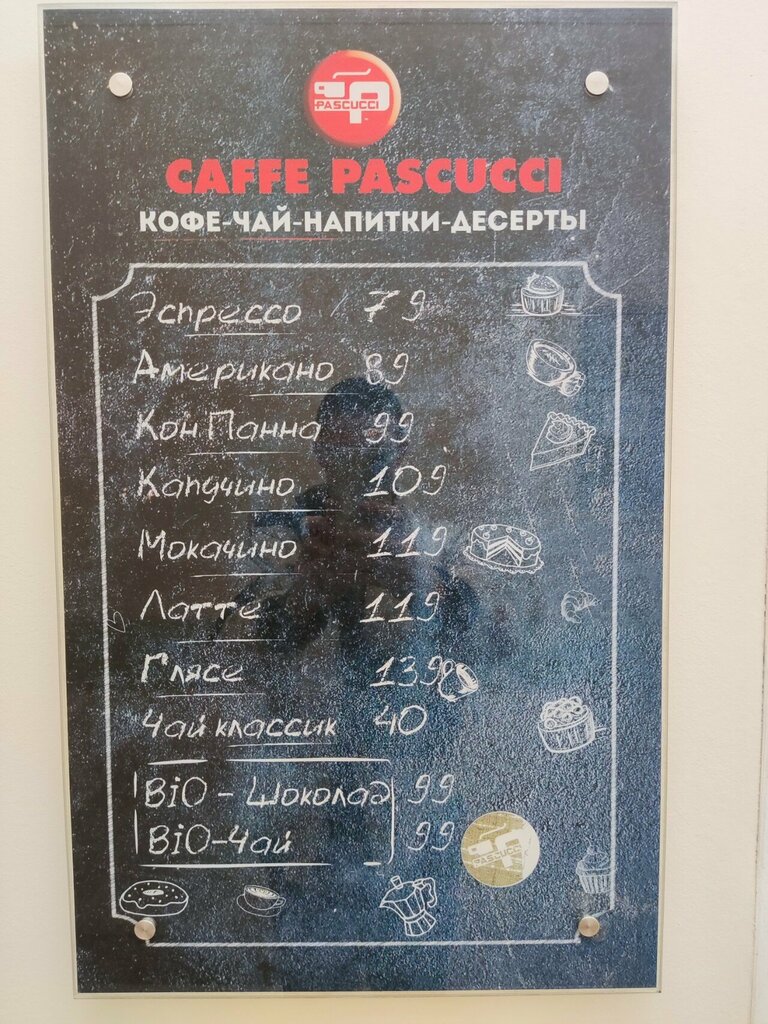 PASCUCCI
CAFFE PASCUCCI
КОФЕ-ЧАЙ-НАПИТКИ-ДЕСЕРТЫ
Эспрессо 79
Американо 89
Кон Панна 99
Капучино 109
Мокачино 119
Латте 119
Глясе 139
Чай классик 40
BiO - Шоколад 99
BiO-Чай 99
PASCUCCI